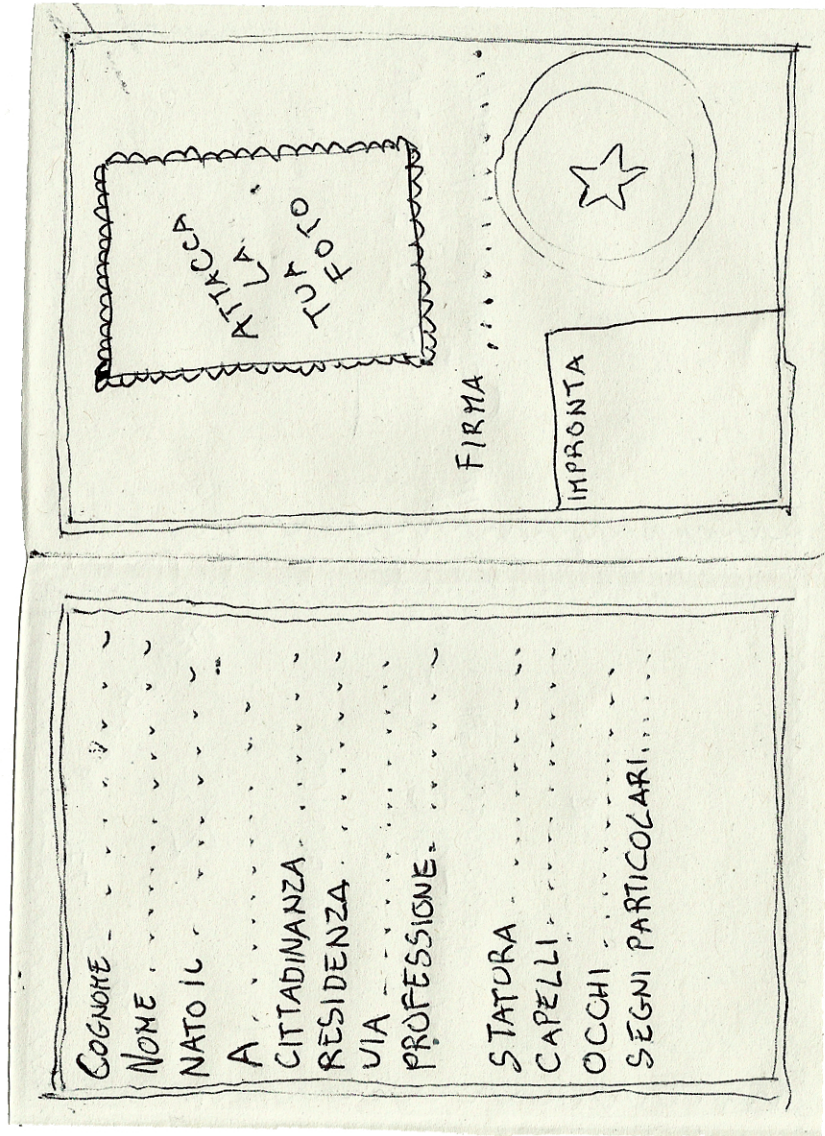 COGNOME
NOME
NATO IL
A
CITTADINANZA
RESIDENZA
VIA
PROFESSIONE
STATURA
CAPELLI
OCCHI
SEGNI PARTICOLARI
ATTACCA
LA
TUA
FOTO
FIRMA
IMPRONTA